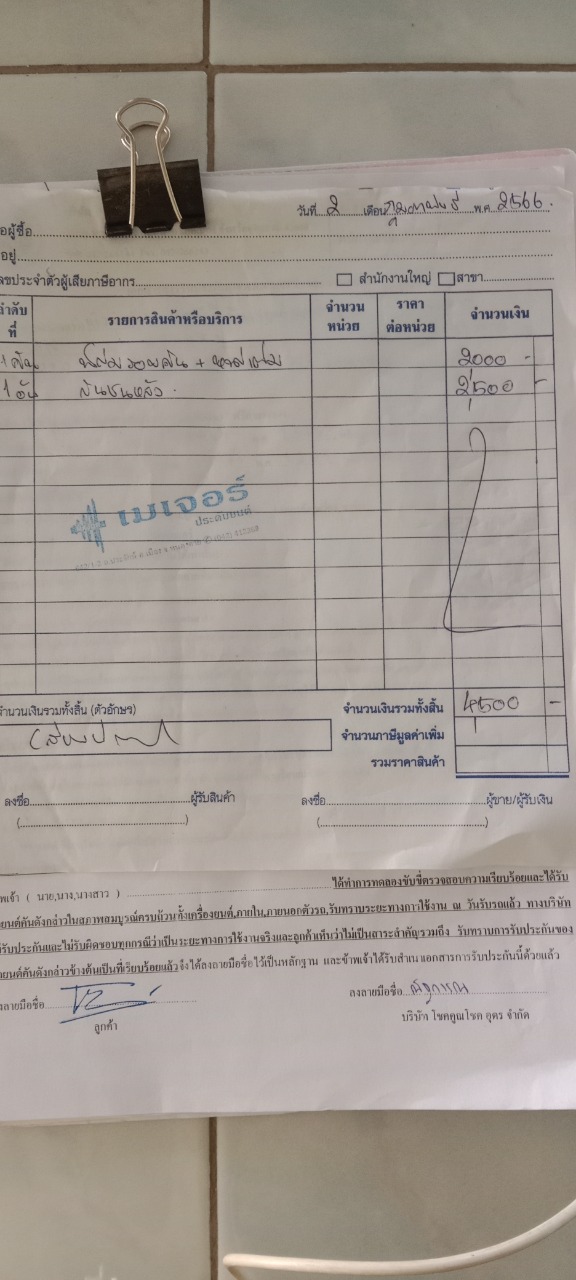 วันที่ 2 เดือน กุมภาพันธ์ พ.ศ. 2566.
อผู้ซื้อ
อยู่
ลขประจำตัวผู้เสียภาษีอากร สำนักงานใหญ่ สาขา
ลำดับที่ รายการสินค้าหรือบริการ จำนวนหน่วย ราคาต่อหน่วย จำนวนเงิน
1 คัน + 2000 -
1 อัน กันชนหลัง. 2500 -
เมเจอร์
ประดับยนต์
จำนวนเงินรวมทั้งสิ้น (ตัวอักษร) จำนวนเงินรวมทั้งสิ้น 4500 -
จำนวนภาษีมูลค่าเพิ่ม
รวมราคาสินค้า
ลงชื่อ ผู้รับสินค้า ลงชื่อ ผู้ขาย/ผู้รับเงิน
( ) ( )
พเจ้า ( นาย,นาง,นางสาว ) ได้ทำการทดลองขับขี่ตรวจสอบความเรียบร้อยและได้รับ
ยนต์คันดังกล่าวในสภาพสมบูรณ์ครบถ้วนทั้งเครื่องยนต์,ภายใน,ภายนอกตัวรถ,รับทราบระยะทางการใช้งาน ณ วันรับรถแล้ว ทางบริษัท
รับประกันและไม่รับผิดชอบทุกกรณีว่าเป็นระยะทางการใช้งานจริงและลูกค้าเห็นว่าไม่เป็นสาระสำคัญรวมถึง รับทราบการรับประกันของ
ยนต์คันดังกล่าวข้างต้นเป็นที่เรียบร้อยแล้วจึงได้ลงลายมือชื่อไว้เป็นหลักฐาน และข้าพเจ้าได้รับสำเนาเอกสารการรับประกันนี้ด้วยแล้ว
ลงลายมือชื่อ ลงลายมือชื่อ
ลูกค้า บริษัท โชคคูณโชค อุดร จำกัด